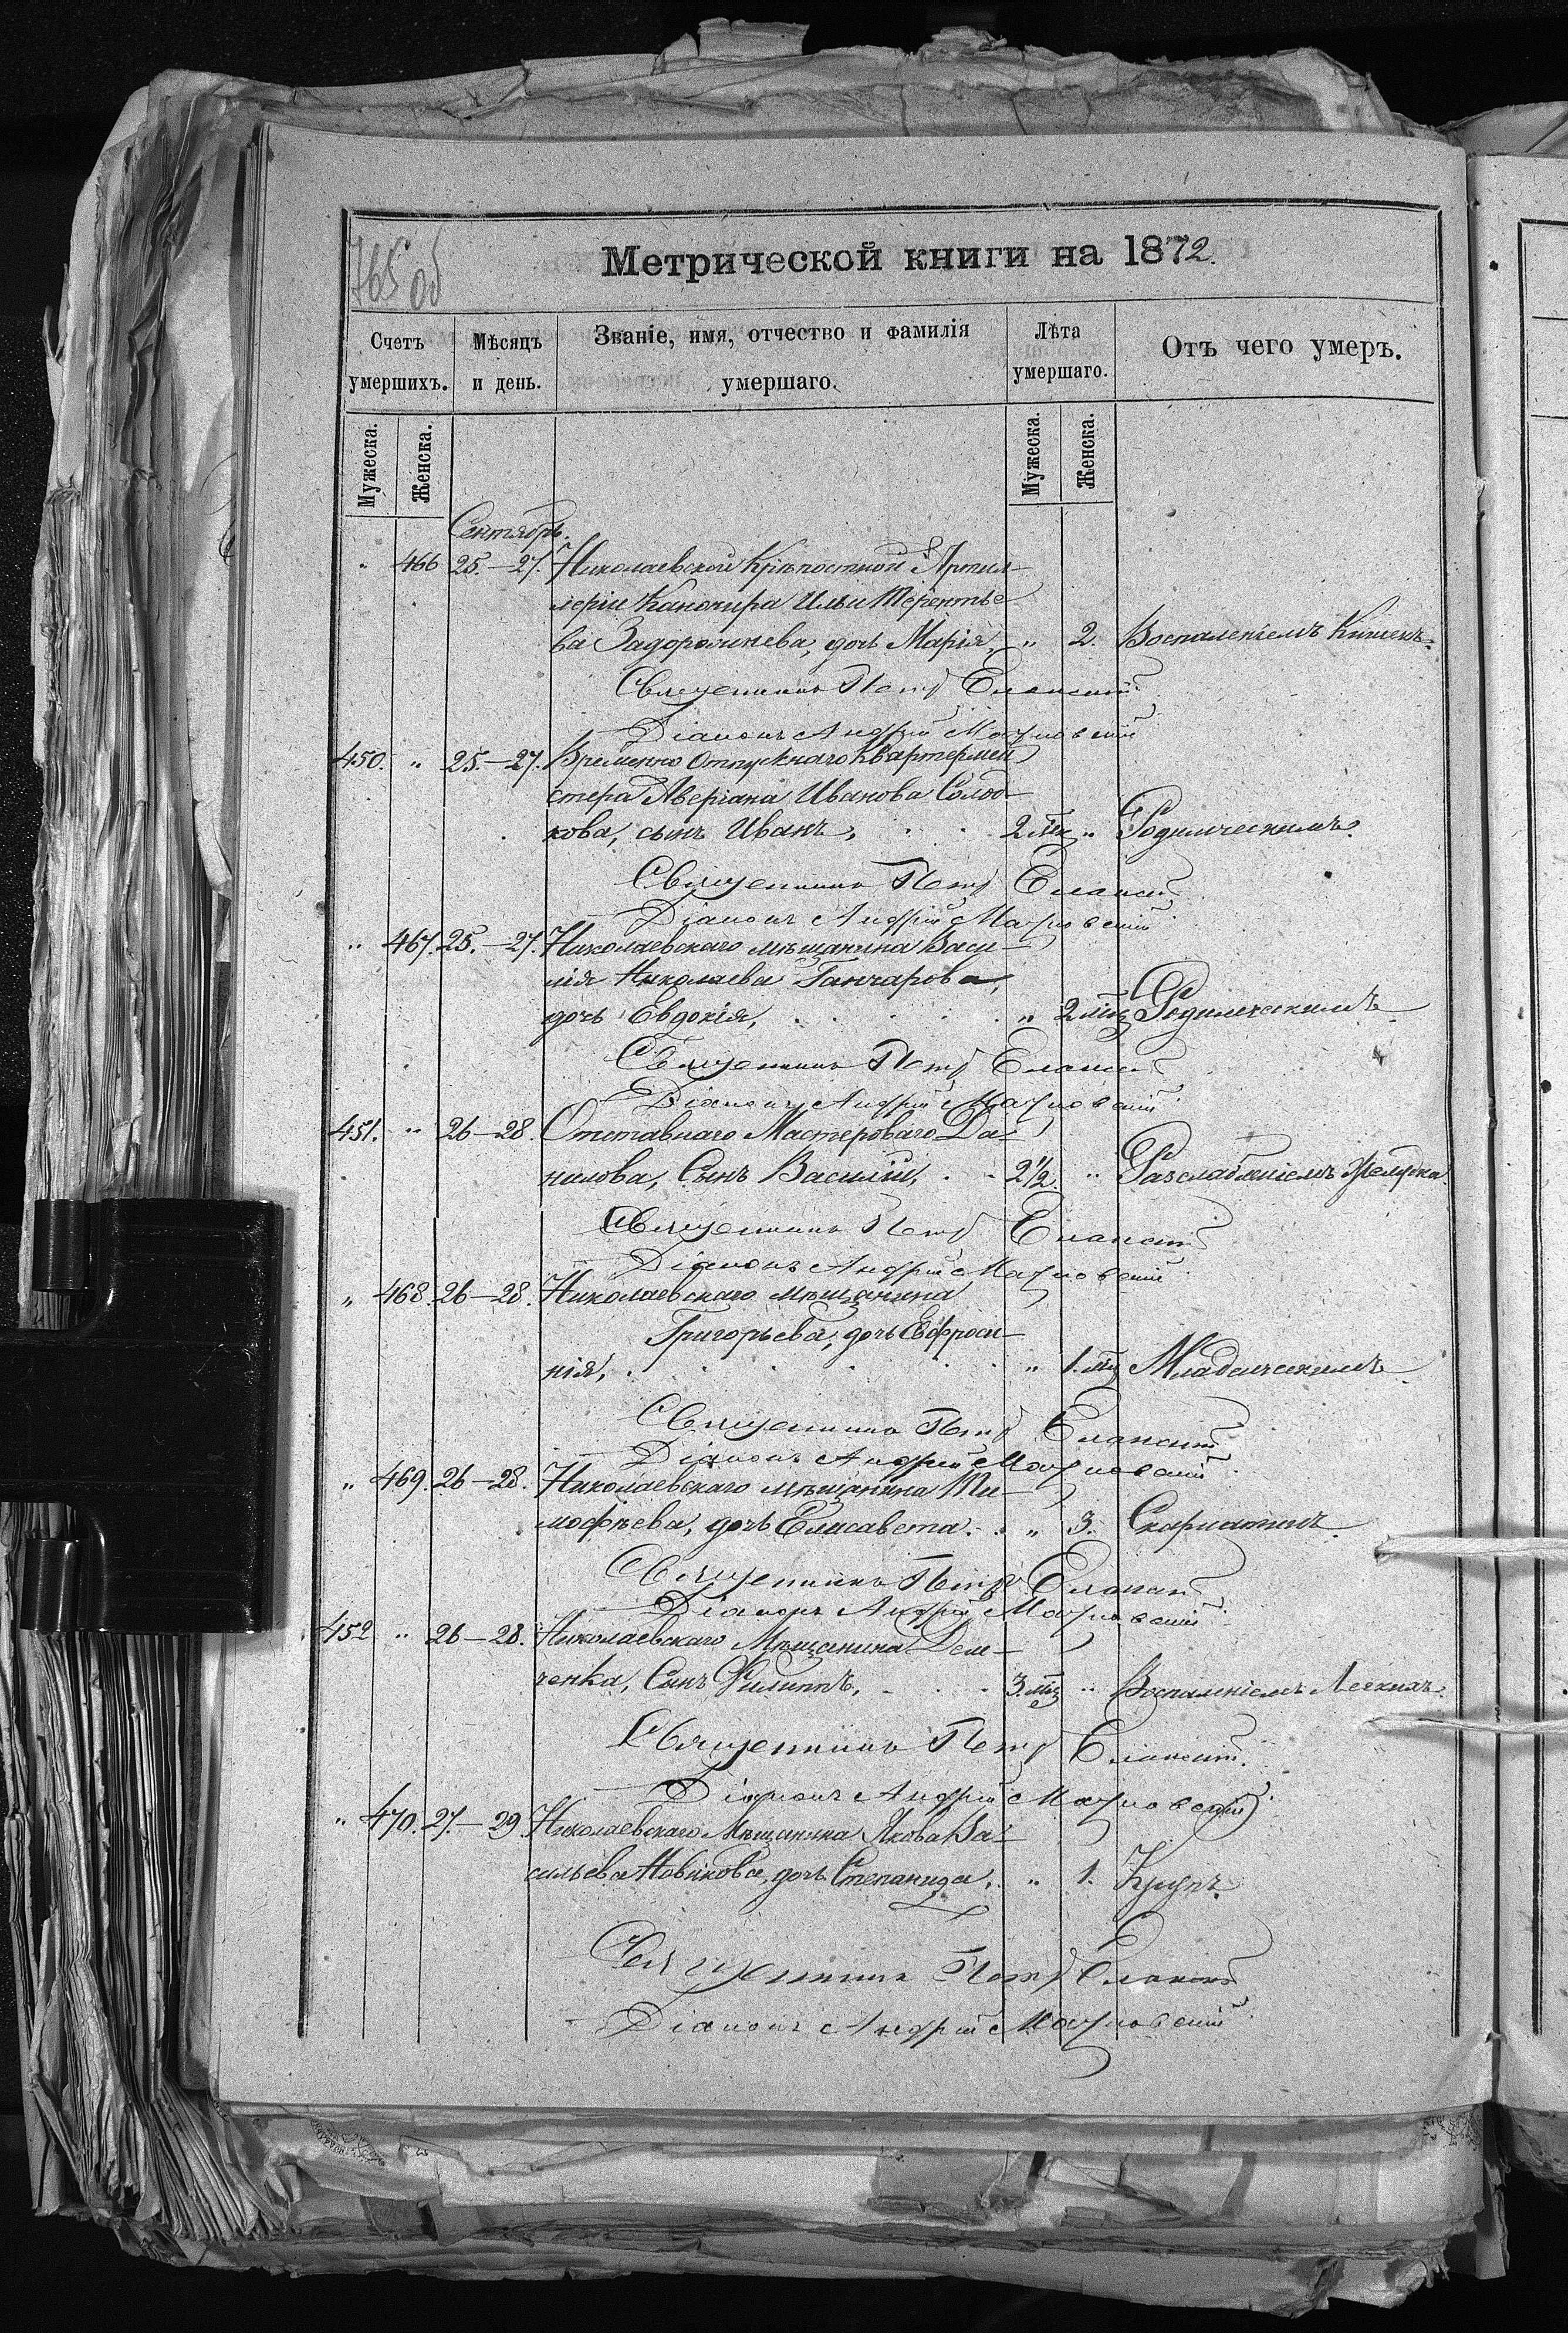 765 об
Метрической книги на 1872.
Счетъ умершихъ.
Мѣсяцъ и день.
Званіе, имя, отчество и фамилія умершаго.
Лѣта умершаго.
Отъ чего умеръ.
Мужеска.
Женска.
Мужеска.
Женска.
Сентябрь.
" 466 25.—27. Николаевской Крѣпостной Артил-
леріи Канонира Ильи Терентье
ва Задорожнева, дочь Марія, " 2. Воспаленіемъ Кишекъ.
Священникъ Петръ Еланскій
Діаконъ Андрей
450. " 25.—27. Временно отпускнаго Квартермей
стера Аверіана Иванова Солод-
кова, сынъ Иванъ, 2 мц " Родимческимъ.
Священникъ Петръ Еланскій
Діаконъ Андрей
" 467. 25.—27. Николаевскаго мѣщанина Васи-
лія Николаева Ганчарова,
дочь Евдокія, " 2 мц Родимческимъ
Священникъ Петръ Еланскій
Діаконъ Андрей
451. " 26—28. Отставнаго Мастероваго Да-
нилова, Сынъ Василій, 2½ " Разслабленіемъ Желудка.
Священникъ Петръ Еланскій
Діаконъ Андрей
" 468. 26—28. Николаевскаго мѣщанина
Григорьева, дочь Евфроси-
нія, " 1. мц Младенческимъ
Священникъ Петръ Еланскій
Діаконъ Андрей
" 469. 26—28. Николаевскаго мѣщанина Ти-
мофѣева, дочь Елисавета. " 3. Скарлатинъ.
Священникъ Петръ Еланскій
Діаконъ Андрей
452 " 26—28. Николаевскаго Мѣщанина Дем-
ченка, Сынъ Филиппъ, 3. мц " Воспаленіемъ Легкихъ.
Священникъ Петръ Еланскій.
Діаконъ Андрей
" 470. 27.—29 Николаевскаго Мѣщанина Якова Ва-
сильева Новикова, дочь Степанида. " 1. Крупъ.
Священникъ Петръ Еланскій
Діаконъ Андрей